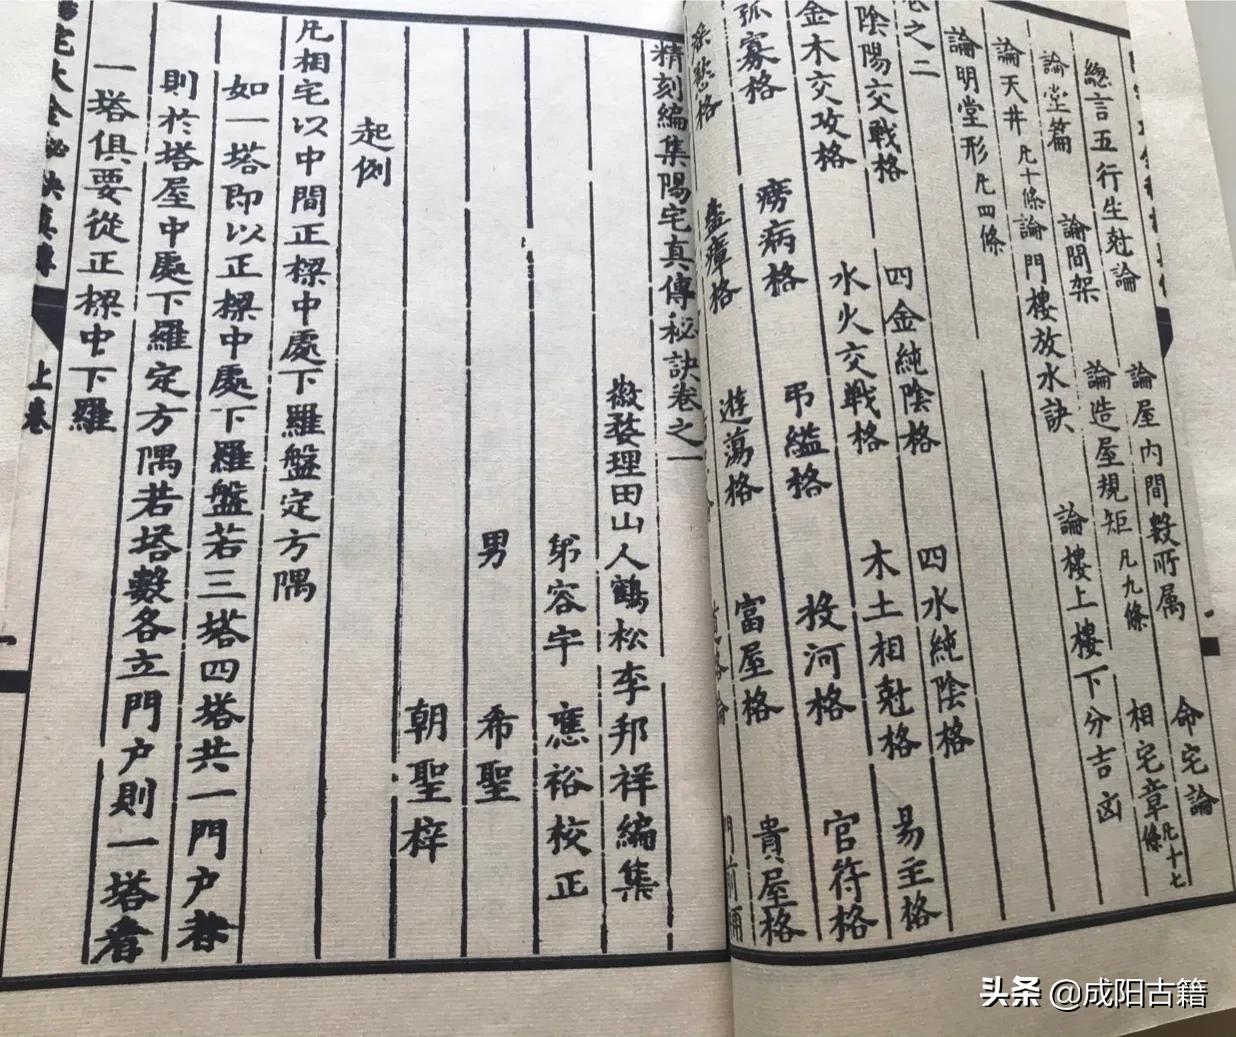 總言五行生尅論 論屋内間數所属 命宅論
論堂篇 論間架 論造屋規矩凡九條 相宅章凡十七條
論天井凡十條 論門樓放水訣 論樓上樓下分吉凶
論明堂形凡四條
卷之二
陰陽交戰格 四金純陰格 四水純陰格
金木交攻格 水火交戰格 木土相尅格 易主格
孤寡格 癆病格 弔縊格 投河格 官符格
淫慾格 蠱瘴格 遊蕩格 富屋格 貴屋格
精刻編集陽宅真傳秘訣卷之一
徽婺理田山人鶴松李邦祥編集
弟容宇 應裕校正
男 希聖
朝聖梓
起例
凡相宅以中間正樑中處下羅盤定方隅
如一塔即以正樑中處下羅盤若三塔四塔共一門户者
則於塔屋中處下羅定方隅若塔數各立門户則一塔者
一塔俱要從正樑中下羅
宅大全秘訣真傳 上卷
头条 @成阳古籍